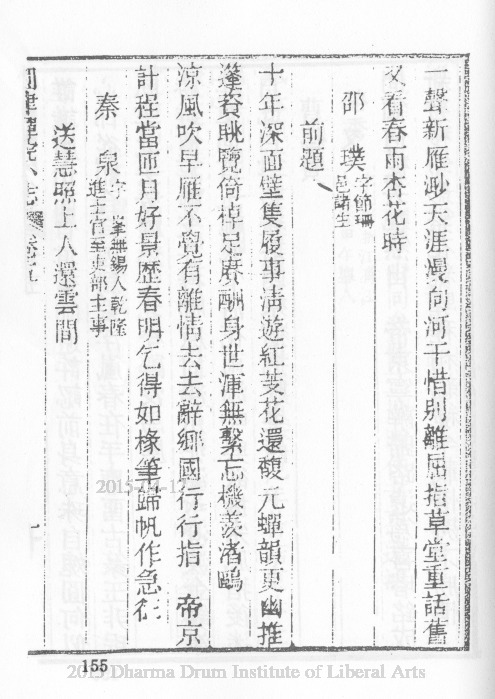 一聲新雁渺天涯漫向河干惜别離屈指草堂重話舊
又看春雨杏花時
邵 璞 字節珊
邑諸生
前題
十年深面壁隻履事清遊紅芰花還馥元蟬韻更幽推
蓬各眺覽倚棹足賡酬身世渾無繫忘機羨渚鷗
涼風吹早雁不覺有離情去去辭鄉國行行指 帝京
計程當匝月好景歷春明乞得如椽筆歸帆作急行
秦 泉 字 峯無錫人乾隆
進士官至吏部主事
送慧照上人還雲間
155
Dharma Drum Institute of Liberal Arts